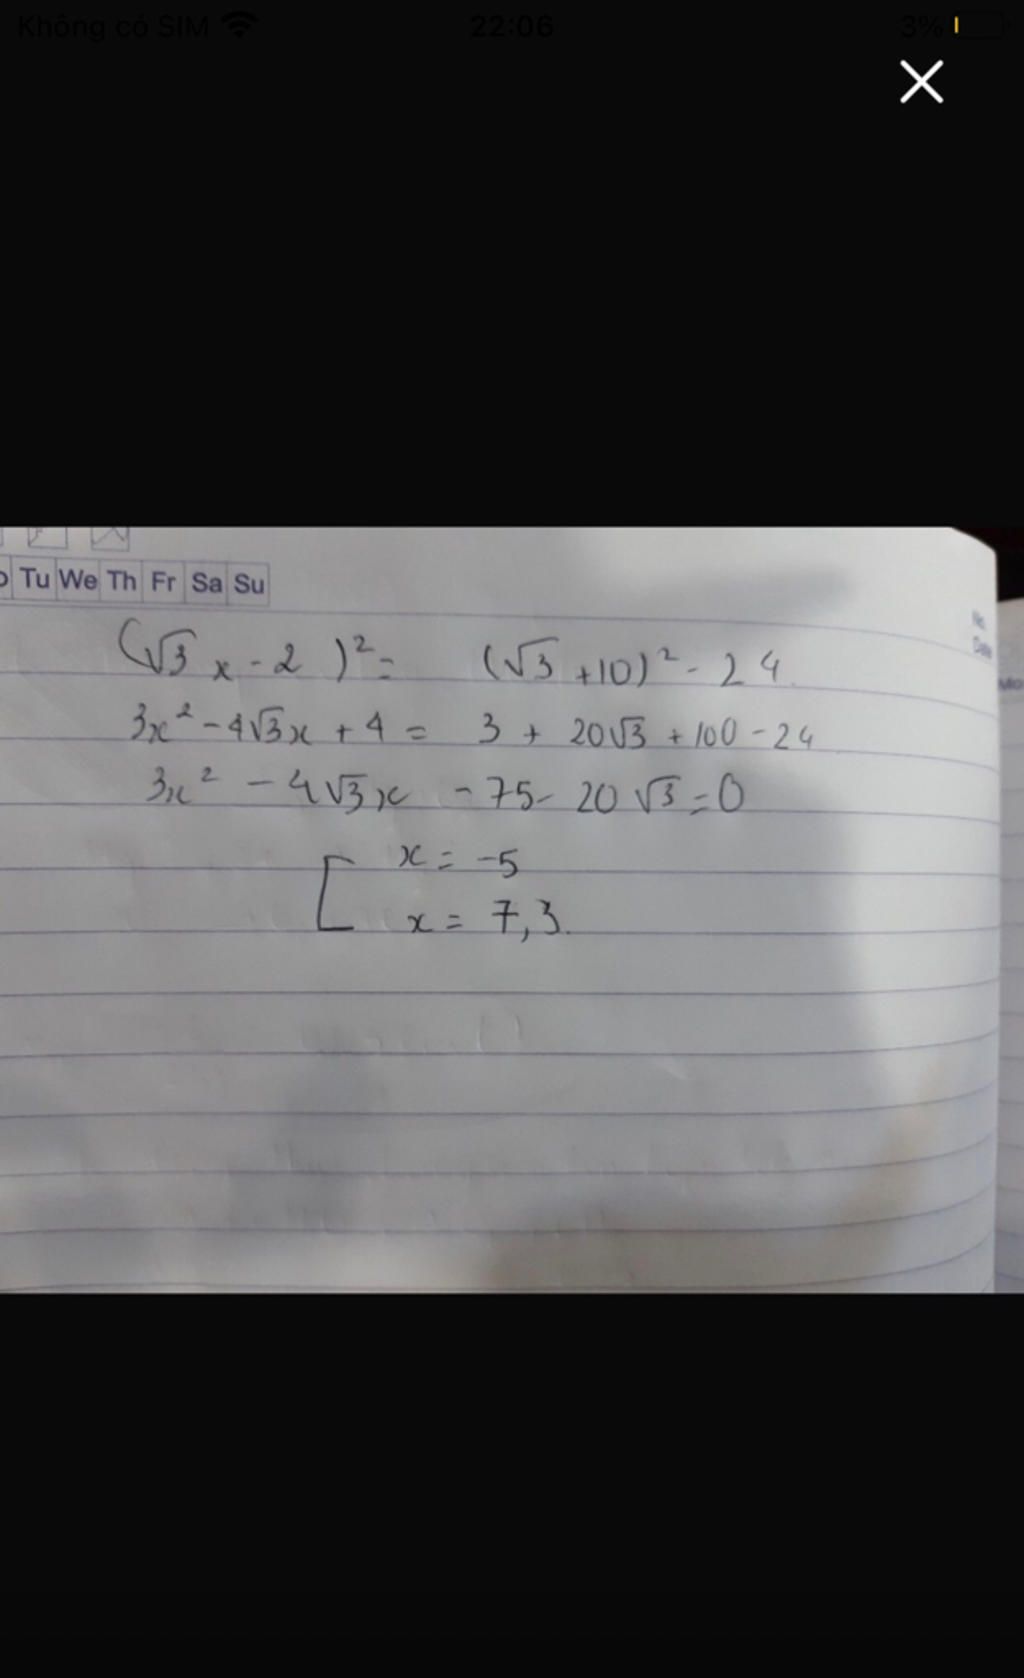 Không có SIM 22:06 3%
Tu We Th Fr Sa Su
No.
Date
Mo
(√3 x - 2)² = (√3 + 10)² - 24
3x² - 4√3x + 4 = 3 + 20√3 + 100 - 24
3x² - 4√3x - 75 - 20√3 = 0
[ x = -5
x = 7,3.